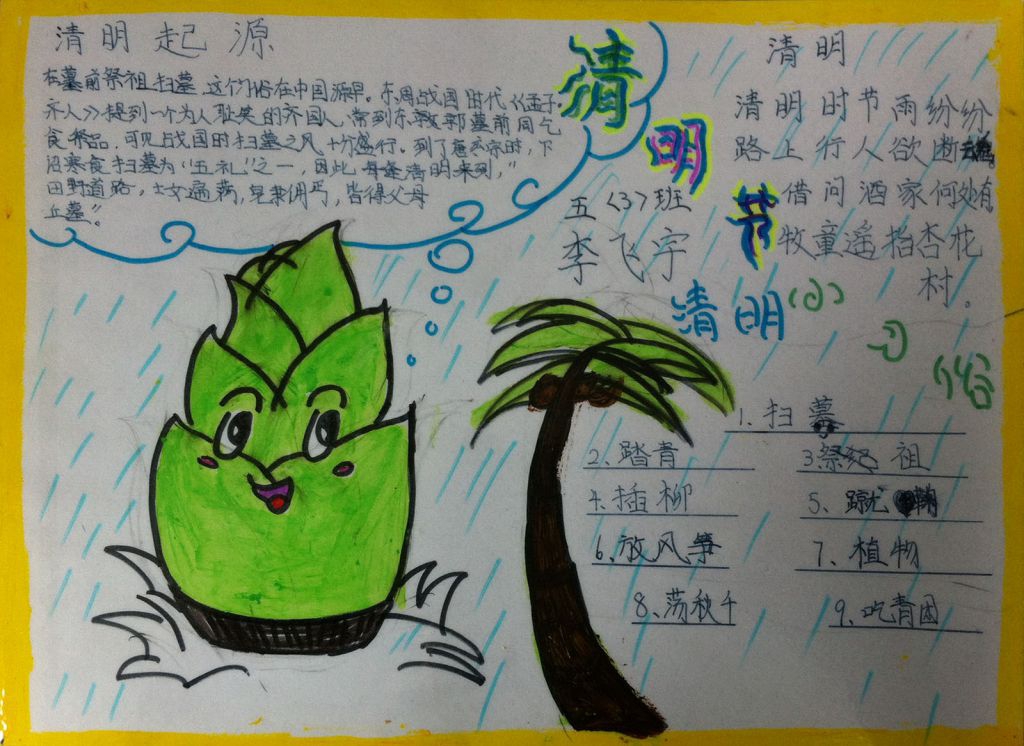 清明起源
在墓前祭祖扫墓,这个习俗在中国源早。东周战国时代《孟子·
齐人》提到一个为人耻笑的齐国人,常到东郭墓前同乞
食祭品,可见战国时扫墓之风十分盛行。到了唐玄宗时,下
诏寒食扫墓为“五礼”之一,因此每逢清明来到,”
田野道路,士女遍满,皂隶佣丐,皆得父母
丘墓”。
清明节
五(3)班
李飞宇
清明
清明时节雨纷纷
路上行人欲断
借问酒家何处有
牧童遥指杏花
村。
清明小习俗
1.扫墓
2、踏青
3.祭祀祖
4.插柳
5、蹴鞠
6、放风筝
7、植物
8、荡秋千
9、吃青团